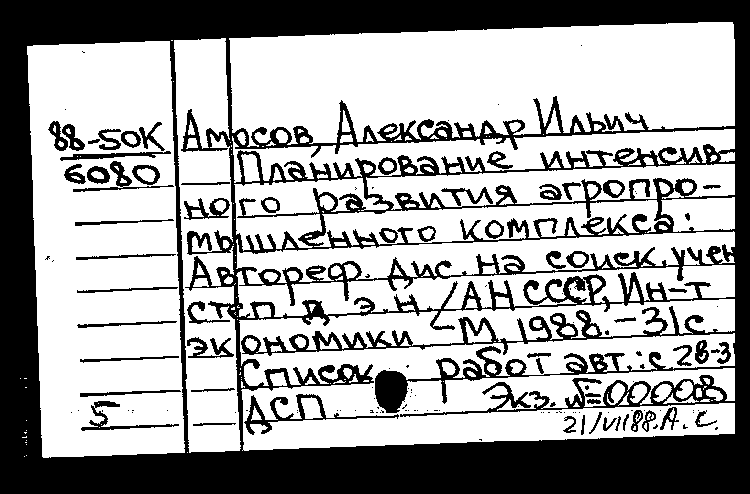 88-50К Амосов, Александр Ильич.
6080 Планирование интенсив-
ного развития агропро-
мышленного комплекса:
Автореф. дис. на соиск. учен
степ. д э.н. / АН СССР, Ин-т
экономики. - М, 1988. - 31 с.
Список работ авт.: с 28-3
5 ДСП. Экз. №=000008
21/VII88. А. С.